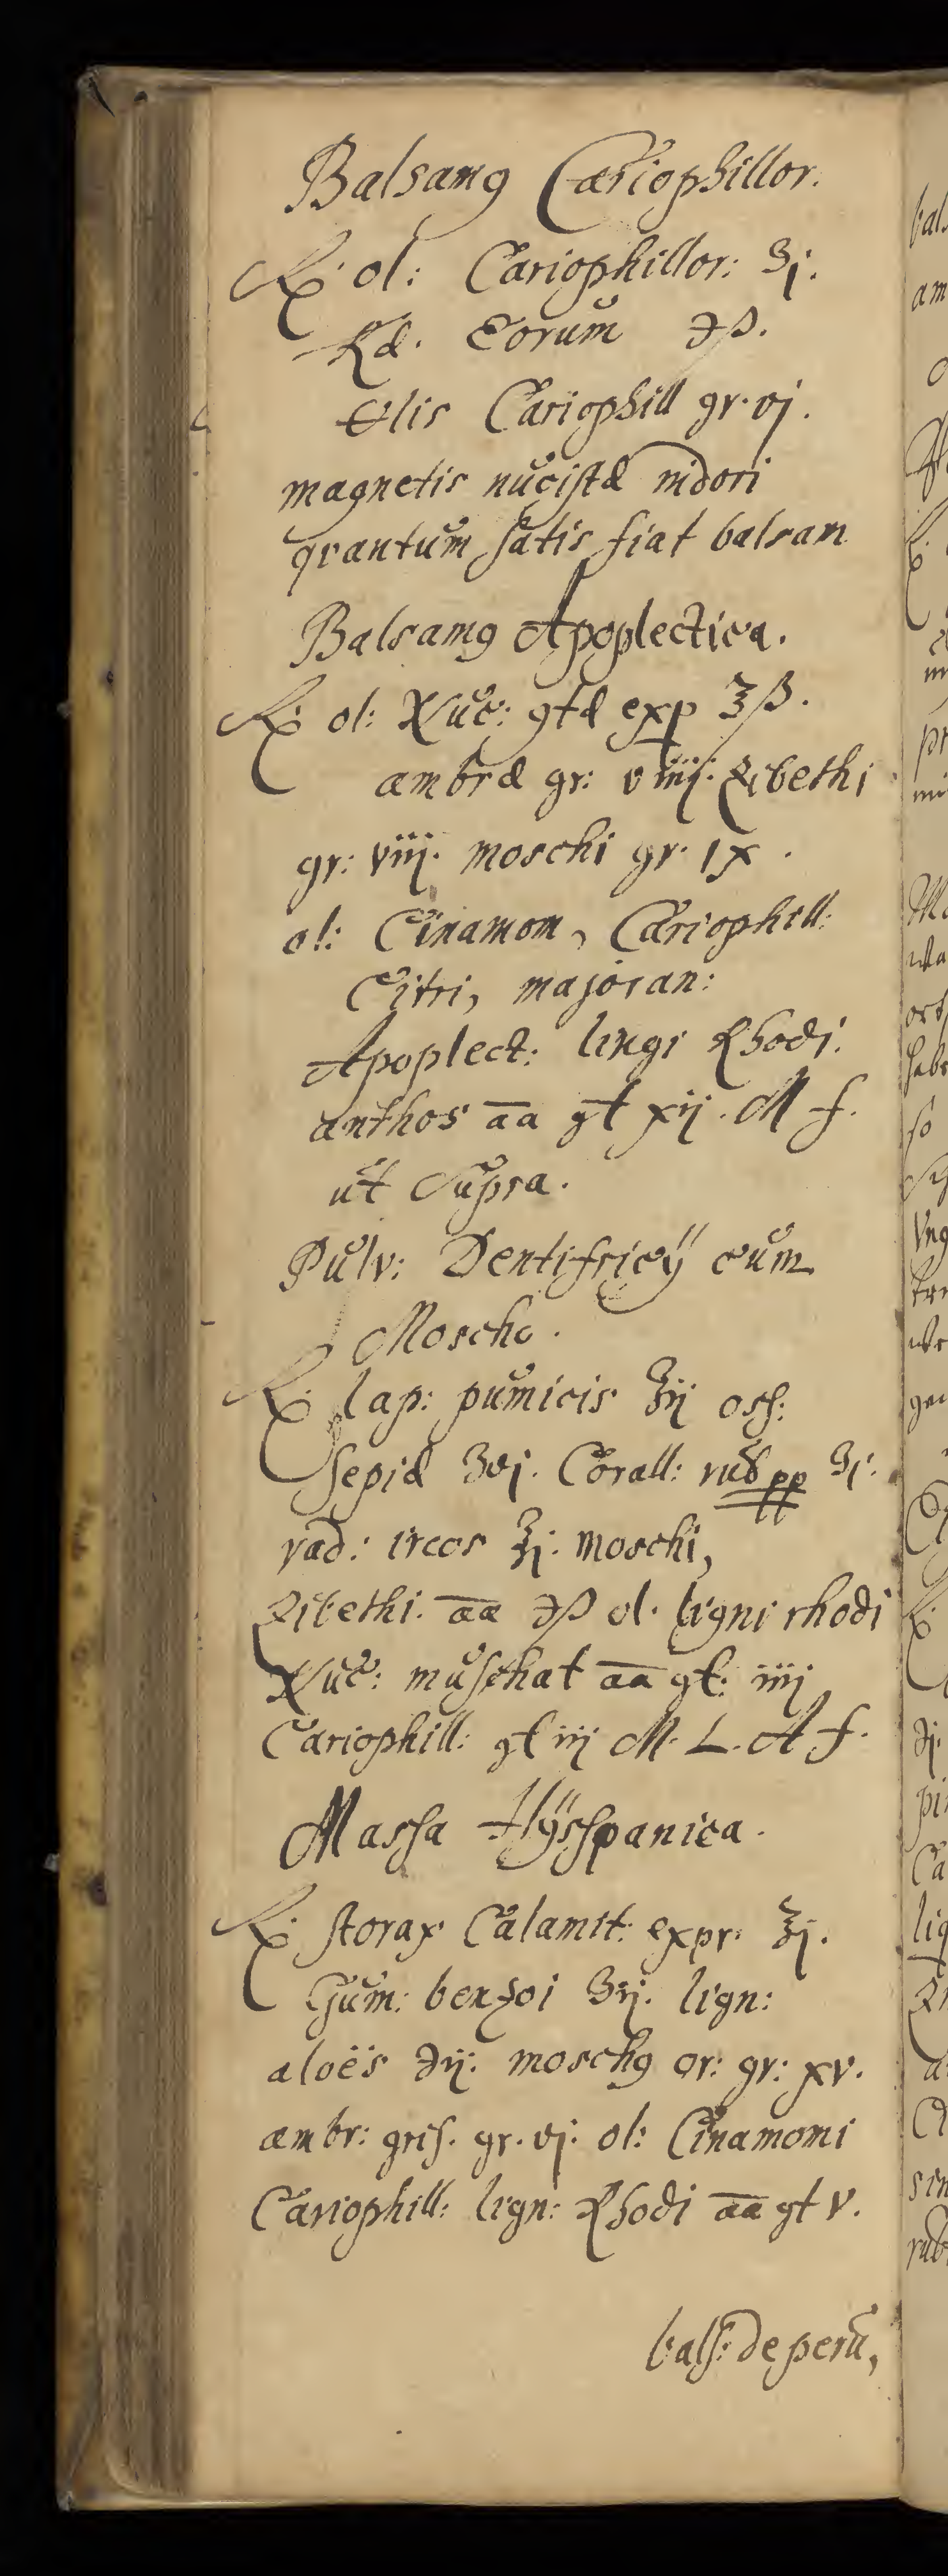 Balsamꝯ Cariophillor.
℞ ol: Cariophillor: ʒj.
Eorum ℈ß.
Cariophill gr. vj.
magnetis nucistæ nidori
quantum satis fiat balsam
Balsamꝯ Apoplectica.
℞ ol: Nuc: exp ℥ß.
ambræ gr: viiij. Zibethi
gr: viij. moschi gr. IX.
ol: Cinamom, Cariophill:
Citri, majoran:
Apoplect: lingi Rhodi.
anthos āā gt xij. M f.
ut supra.
Pulv: Dentifricÿ cum
Moscho.
℞ lap: pumicis ℥ij oss:
sepiæ ʒvj. Corall: rub pp ʒj.
rad: ireos ℥j. moschi,
Zibethi. āā ℈ß ol. ligni rhodi
Nuc: muschat āā gt: iiij
Cariophill: gt iij M. L. A f.
Massa Hÿsspanica.
℞ storax Calamit: expr. ℥j.
Gum: benzoi ʒij. lign:
aloës ℈ij. moschꝯ or: gr: xv.
ambr: gris. gr. vj. ol: Cinamomi
Cariophill: lign: Rhodi āā gt V.
bals: de peru,